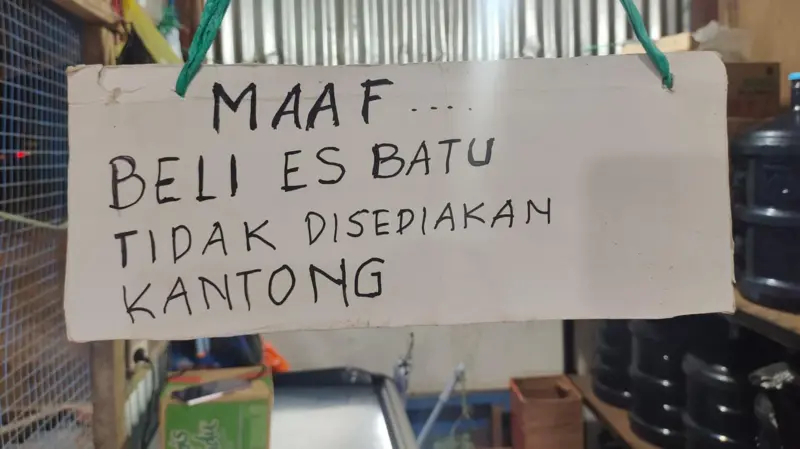 MAAF....
BELI ES BATU
TIDAK DISEDIAKAN
KANTONG